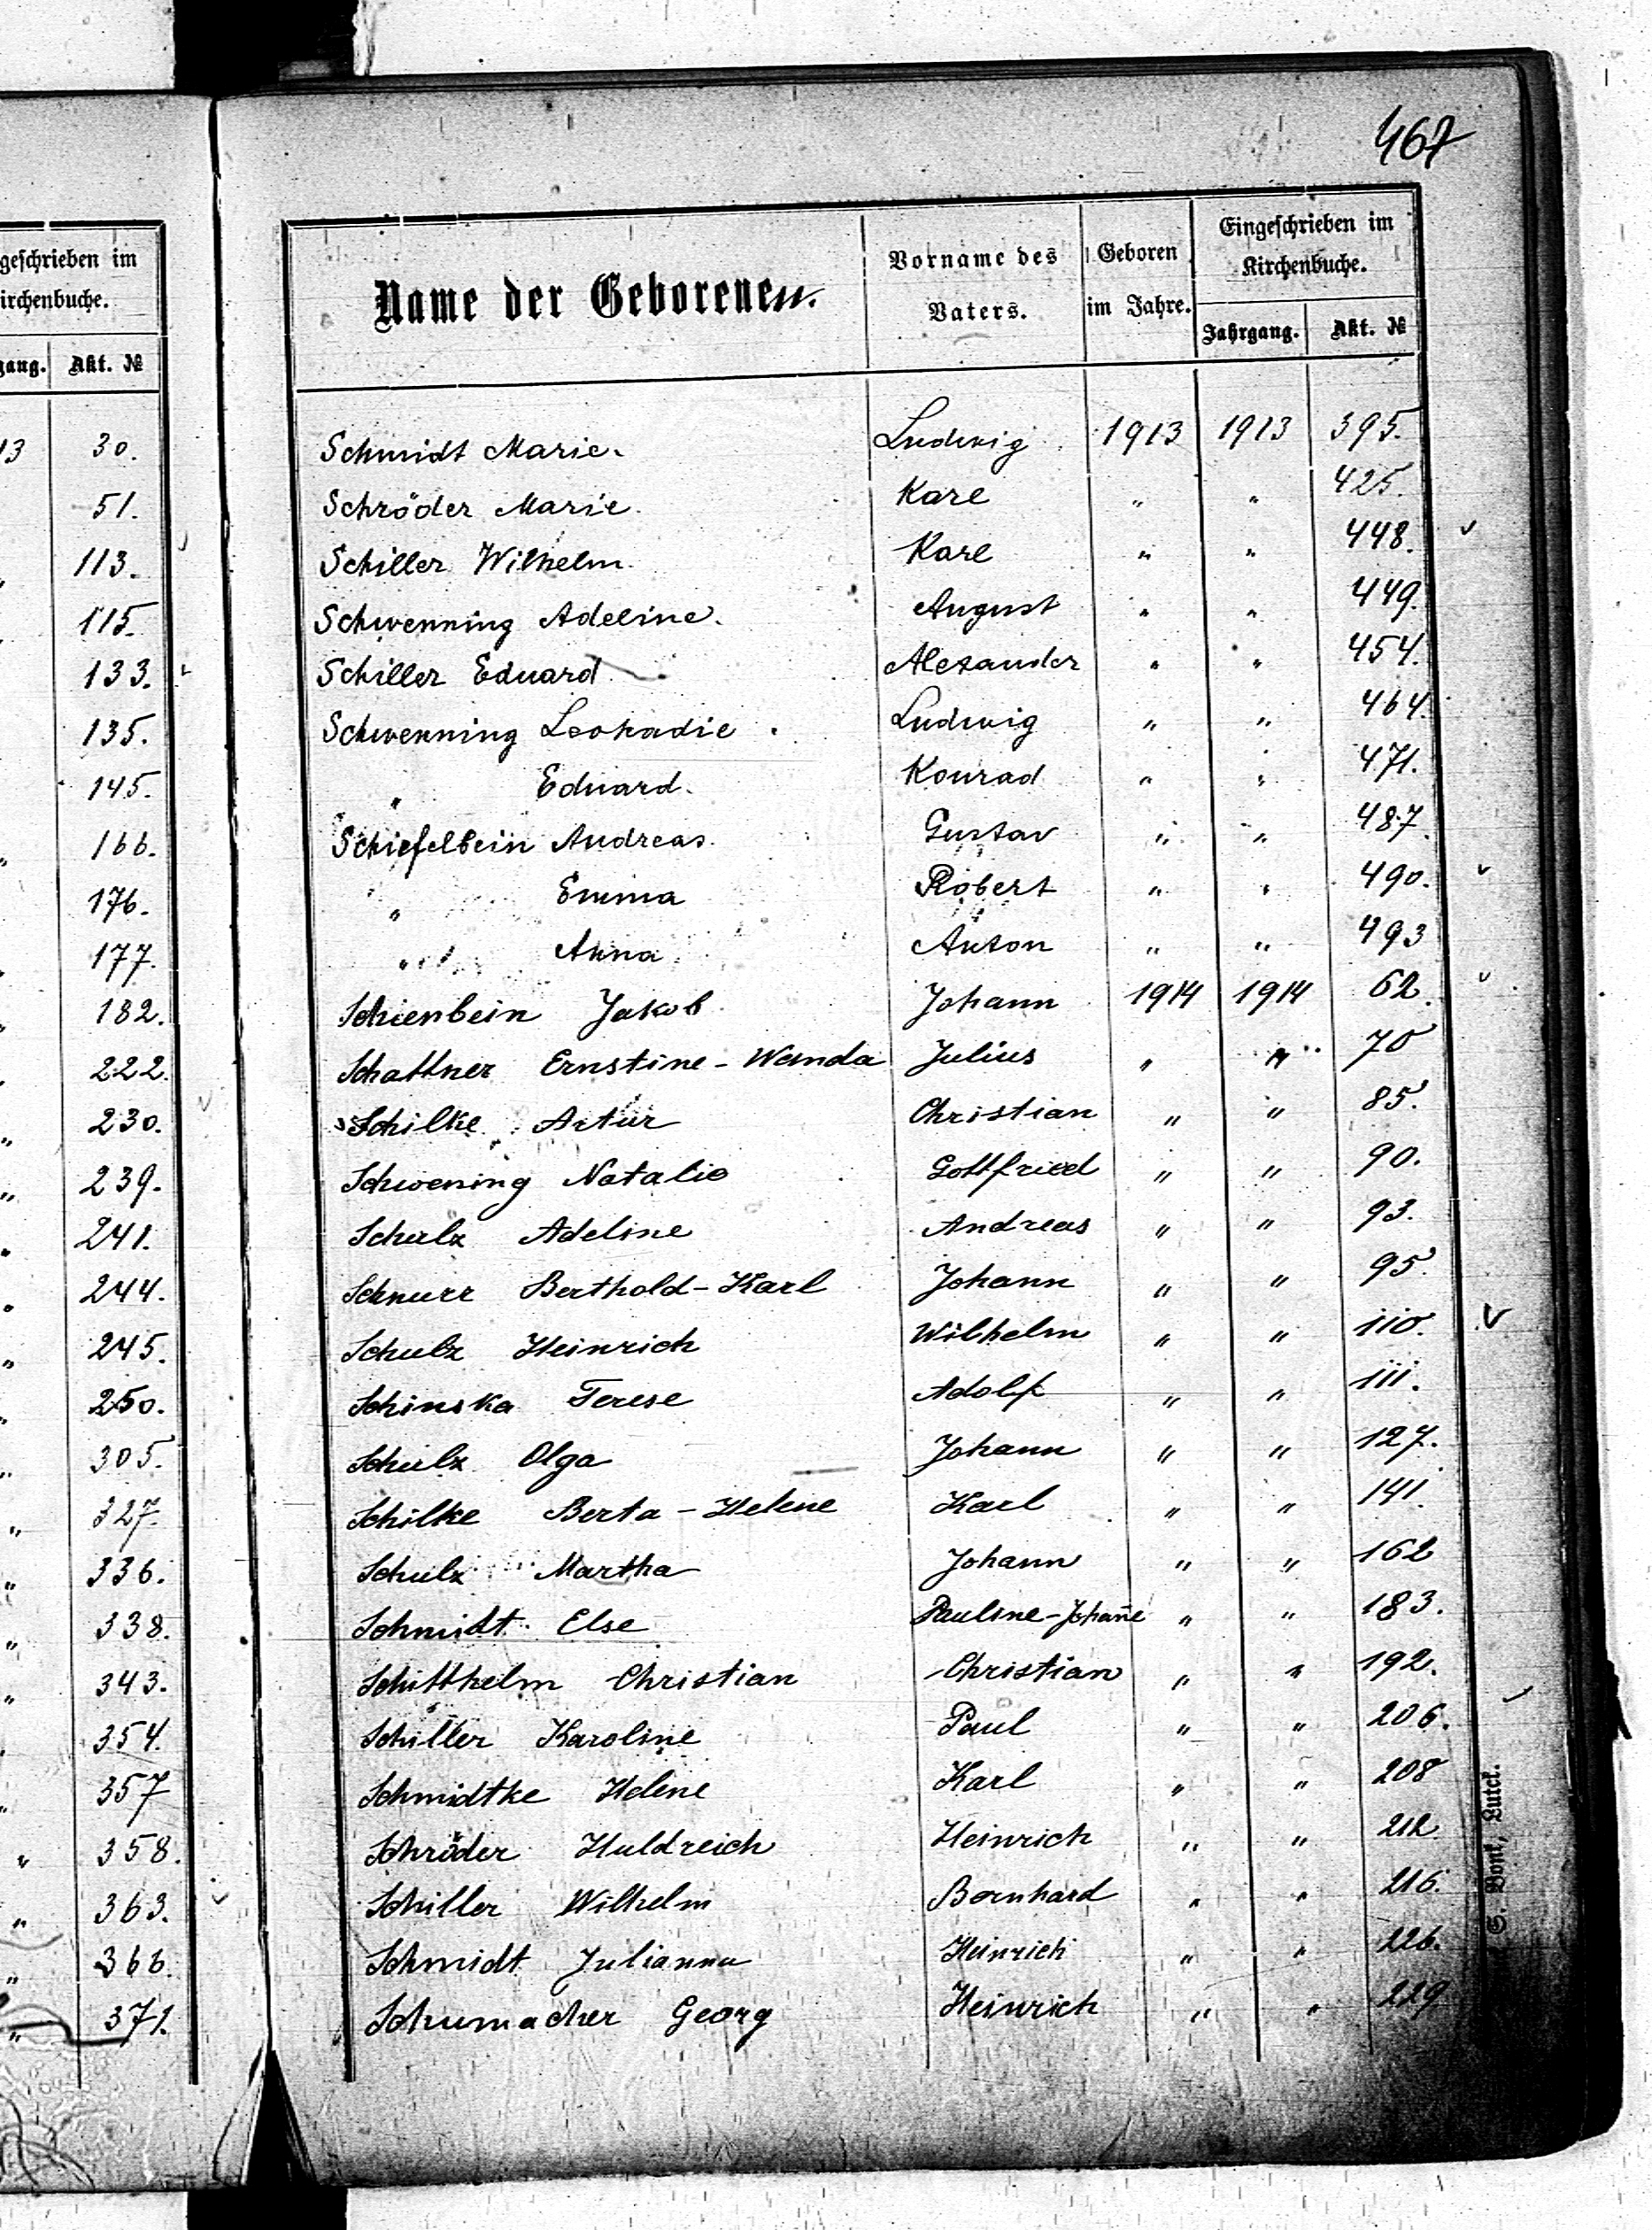 467
geschrieben im
irchenbuche.
gang. Akt. №
13 30.
51.
" 113.
" 115.
133.
135.
145.
" 166.
176.
" 177.
" 182.
" 222.
" 230.
" 239.
" 241.
" 244.
" 245.
" 250.
" 305.
" 327.
" 336.
" 338.
" 343.
" 354.
" 357
" 358.
" 363.
" 366.
" 371.
Name der Geborenen. Vorname des Vaters. Geboren im Jahre. Eingeschrieben im Kirchenbuche.
Jahrgang. Akt. №
Schmidt Marie. Ludwig 1913 1913 395.
Schröder Marie. Karl " " 425.
Schiller Wilhelm. Karl " " 448. ✓
Schwenning Adeline. August " " 449.
Schiller Eduard. Alexander " " 454.
Schwenning Leokadie. Ludwig " " 464.
" Eduard. Konrad " " 471.
Schiefelbein Andreas. Gustav " " 487.
" Emma Robert " " 490. ✓
" Anna Anton " " 493
Schienbein Jakob Johann 1914 1914 62. ✓
Schattner Ernstine-Wanda Julius " " 70
Schilke Artur Christian " " 85.
Schwening Natalie Gottfried " " 90.
Schulz Adeline Andreas " " 93.
Schnurr Berthold-Karl Johann " " 95.
Schulz Heinrich Wilhelm " " 110. ✓
Schinska Terese Adolf " " 111.
Schulz Olga Johann " " 127.
Schilke Berta-Helene Karl " " 141.
Schulz Martha Johann " " 162
Schmidt Else Pauline-Johan̄e " " 183.
Schitthelm Christian Christian " " 192.
Schiller Karoline Paul " " 206. ✓
Schmidtke Helene Karl " " 208
Schröder Huldreich Heinrich " " 212
Schiller Wilhelm Bernhard " " 216.
Schmidt Julianna Heinrich " " 226.
Schumacher Georg Heinrich " " 229
S. Bont, Luck.